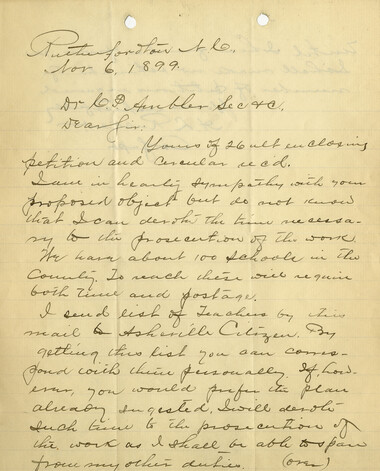 Rutherfordton N.C.
Nov 6, 1899.
Dr C.P. Ambler Sec &c,
Dear Sir.
Yours of 26 ult enclosing
petition and circular recd.
I am in hearty sympathy with your
proposed object but do not know
that I can devote the time necessa-
ry to the prosecution of the work.
We have about 100 schools in the
County. To reach these will require
both time and postage.
I send list of Teachers by this
mail to Asheville Citizen. By
getting this list you can corres-
pond with them personally. If, how-
ever, you would prefer the plan
already sugested, I will devote
such time to the prosecution of
the work as I shall be able to spare
from my other duties. (over)